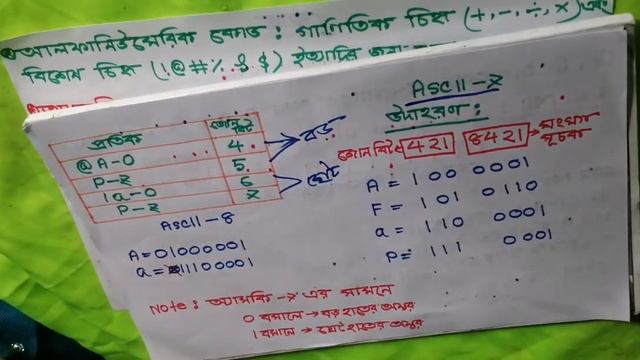 আলফানিউমেরিক কোড : গাণিতিক চিহ্ন (+, -, ÷, ×) এবং
বিশেষ চিহ্ন (!@#%.&$) ইত্যাদি জন্য
প্রতীক জোন বিট
@A-O 4
P-Z 5
la-o 6
P-z 7
বড়
ছোট
ASCII-8
A=01000001
a=11100001
ASCII-7
উদাহরণ :
জোন বিট 421 8421 → সংখ্যা সূচক
A = 100 0001
F = 101 0110
a = 110 0001
p = 111 0001
Note : অ্যাসকি-7 এর সামনে
0 বসালে → বড় হাতের অক্ষর
1 বসালে → ছোট হাতের অক্ষর